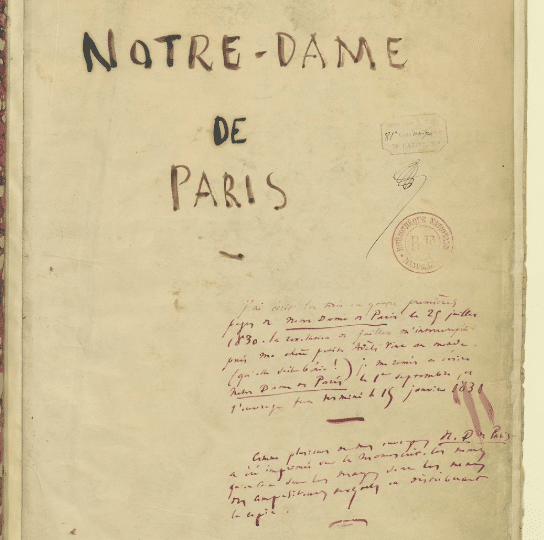 NOTRE-DAME
DE
PARIS
81e
BIBLIOTHÈQUE NATIONALE
R.F.
J'ai écrit les trois ou quatre premières
pages de Notre Dame de Paris le 25 juillet
1830. la révolution de juillet m'interrompit.
puis ma chère petite Adèle vint au monde
(qu'elle soit bénie!) je me remis à écrire
Notre Dame de Paris le 1er septembre, et
l'ouvrage fut terminé le 15 janvier 1831
Comme plusieurs de mes ouvrages N. D. de Paris
a été imprimé sur le manuscrit. les noms
qu'on lit dans les marges sont les noms
des compositeurs auxquels on distribuait
la copie.